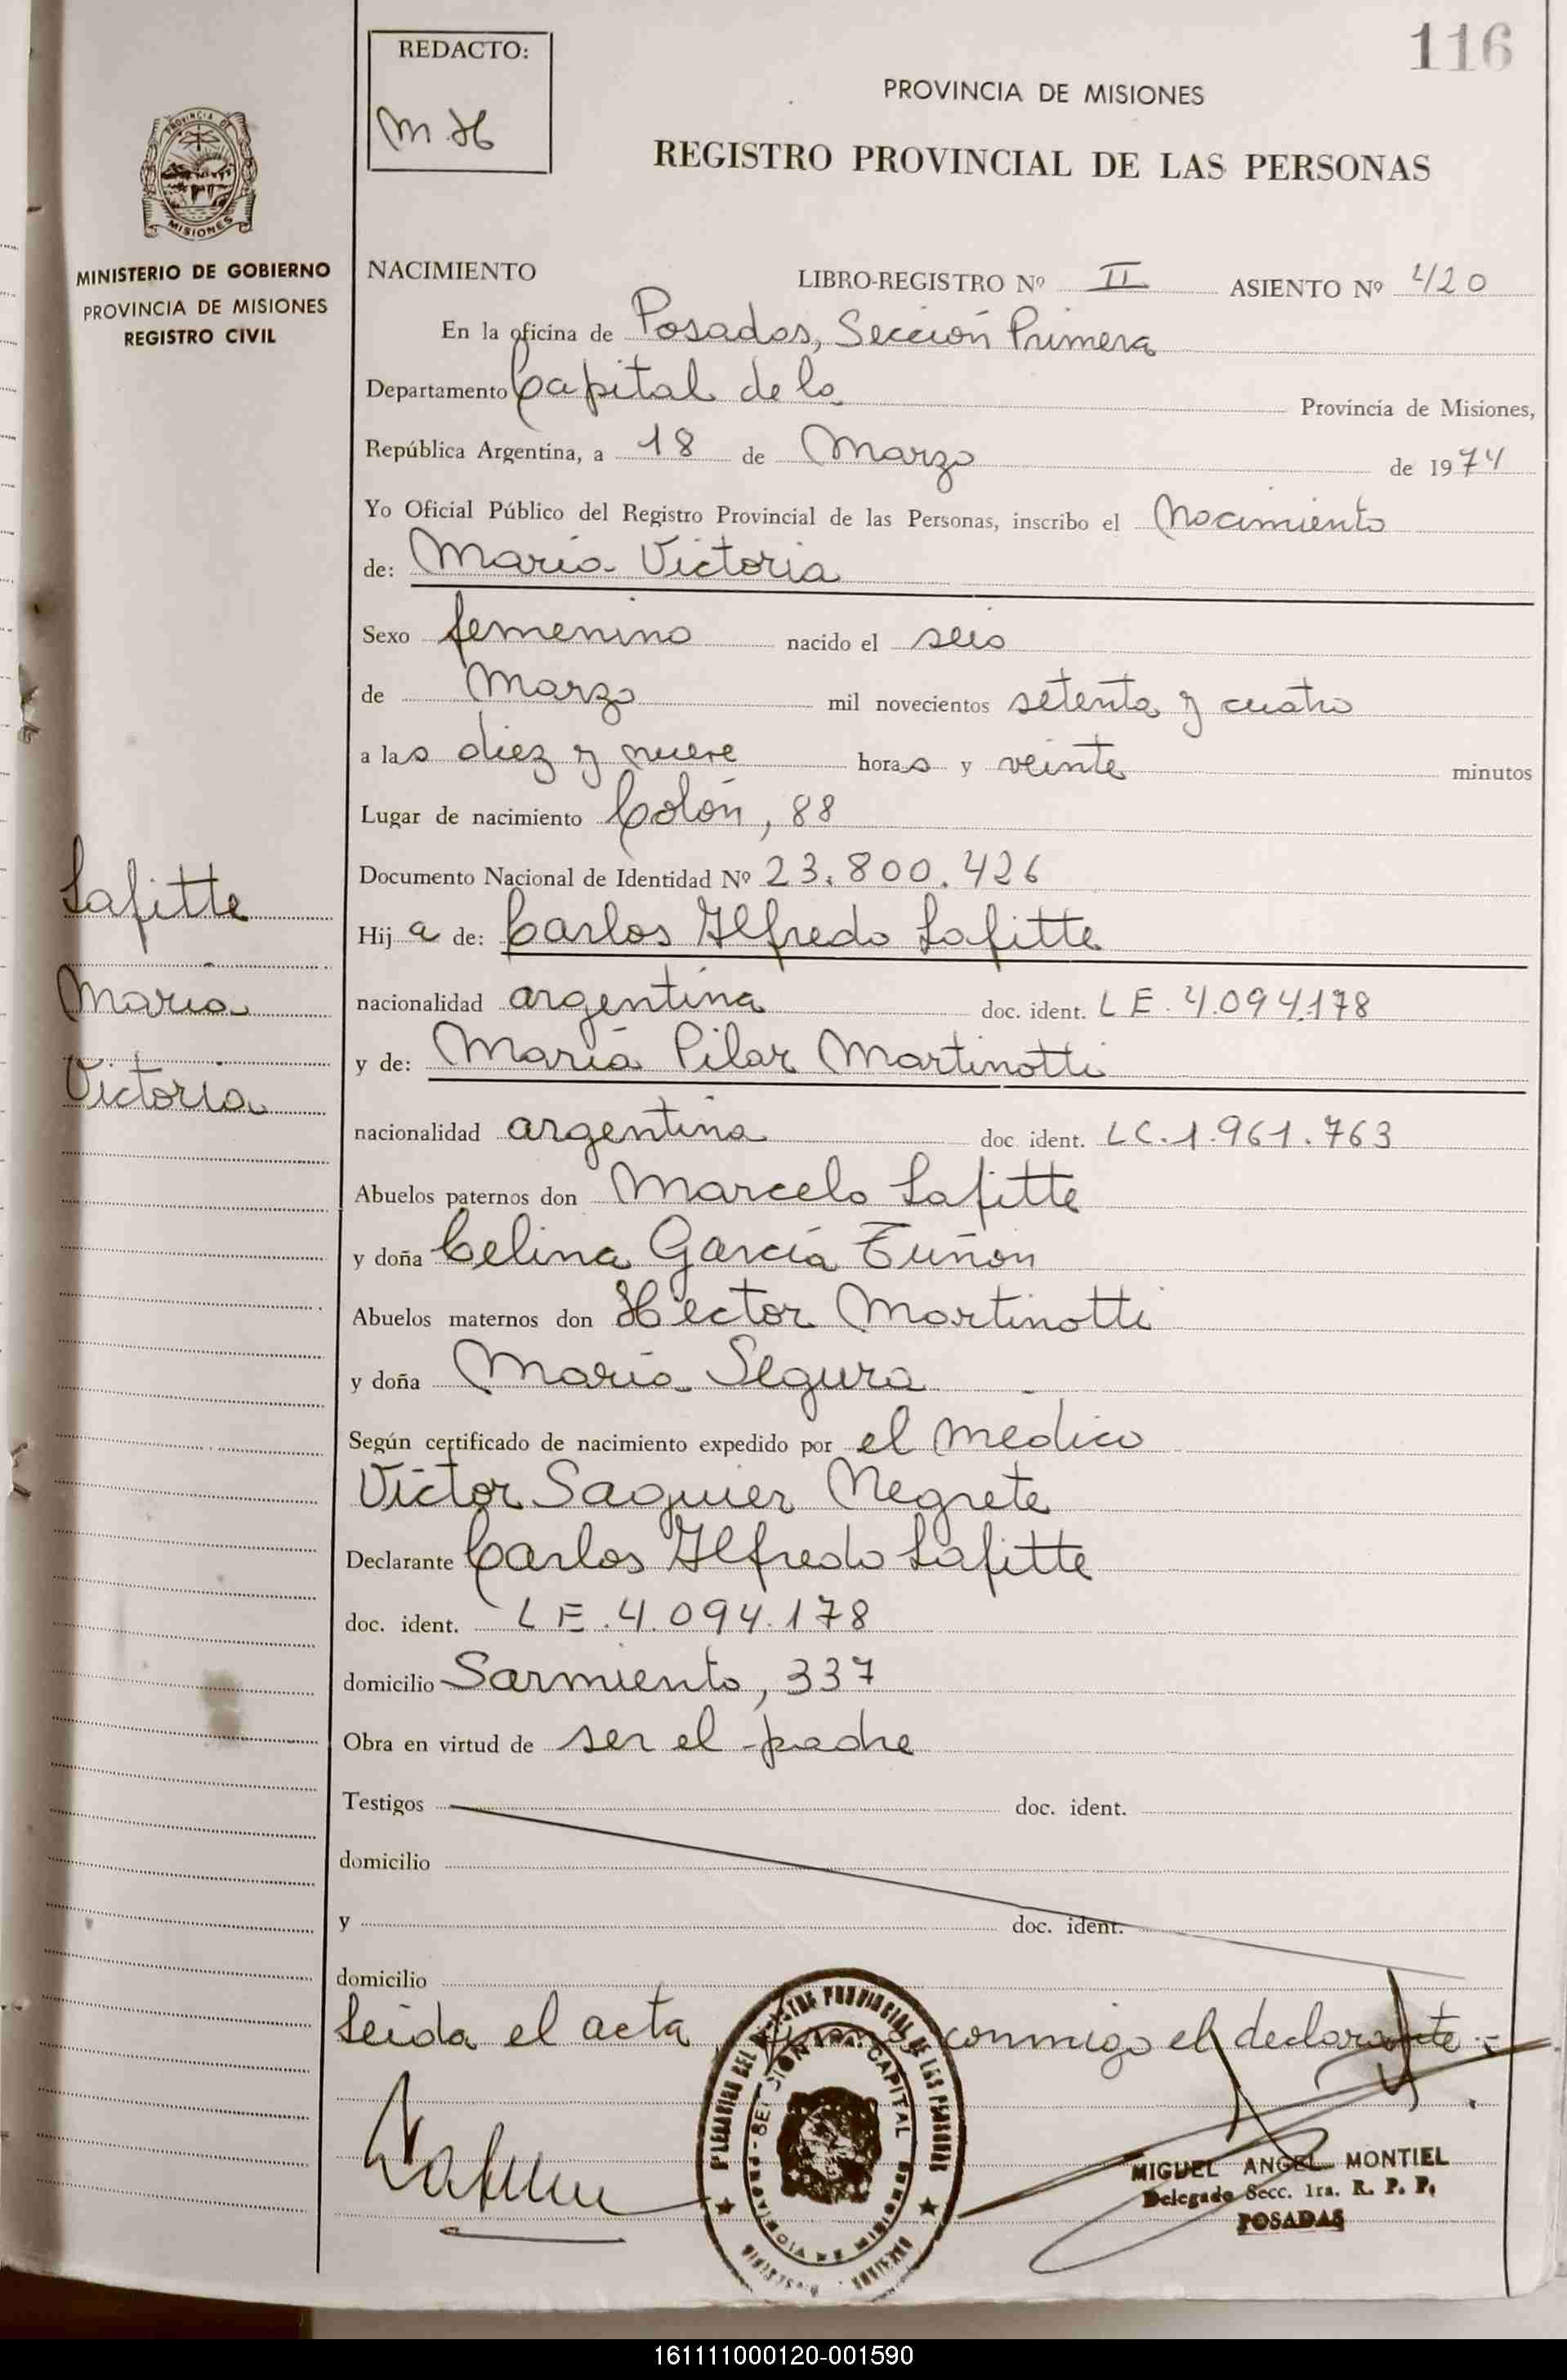 116
REDACTO:
M H
PROVINCIA DE MISIONES
REGISTRO PROVINCIAL DE LAS PERSONAS
PROVINCIA DE
MISIONES
MINISTERIO DE GOBIERNO
PROVINCIA DE MISIONES
REGISTRO CIVIL
NACIMIENTO LIBRO-REGISTRO Nº II ASIENTO Nº 420
En la oficina de Posadas, Sección Primera
Departamento Capital de la Provincia de Misiones,
República Argentina, a 18 de Marzo de 1974
Yo Oficial Público del Registro Provincial de las Personas, inscribo el Nacimiento
de: María Victoria
Sexo femenino nacido el seis
de Marzo mil novecientos setenta y cuatro
a las diez y nueve horas y veinte minutos
Lugar de nacimiento Colón, 88
Documento Nacional de Identidad Nº 23.800.426
Hija de: Carlos Alfredo Lafitte
nacionalidad argentina doc. ident. LE. 4.094.178
y de: María Pilar Martinotti
nacionalidad argentina doc. ident. LC. 1.961.763
Abuelos paternos don Marcelo Lafitte
y doña Celina García Tuñon
Abuelos maternos don Hector Martinotti
y doña María Segura
Según certificado de nacimiento expedido por el médico
Víctor Saguier Negrete
Declarante Carlos Alfredo Lafitte
doc. ident. LE. 4.094.178
domicilio Sarmiento, 337
Obra en virtud de ser el padre
Testigos doc. ident.
domicilio
y doc. ident.
domicilio
Leída el acta conmigo el declarante.-
Lafitte
María
Victoria
MIGUEL ANGEL MONTIEL
Delegado Secc. 1ra. R. P. P.
POSADAS
161111000120-001590